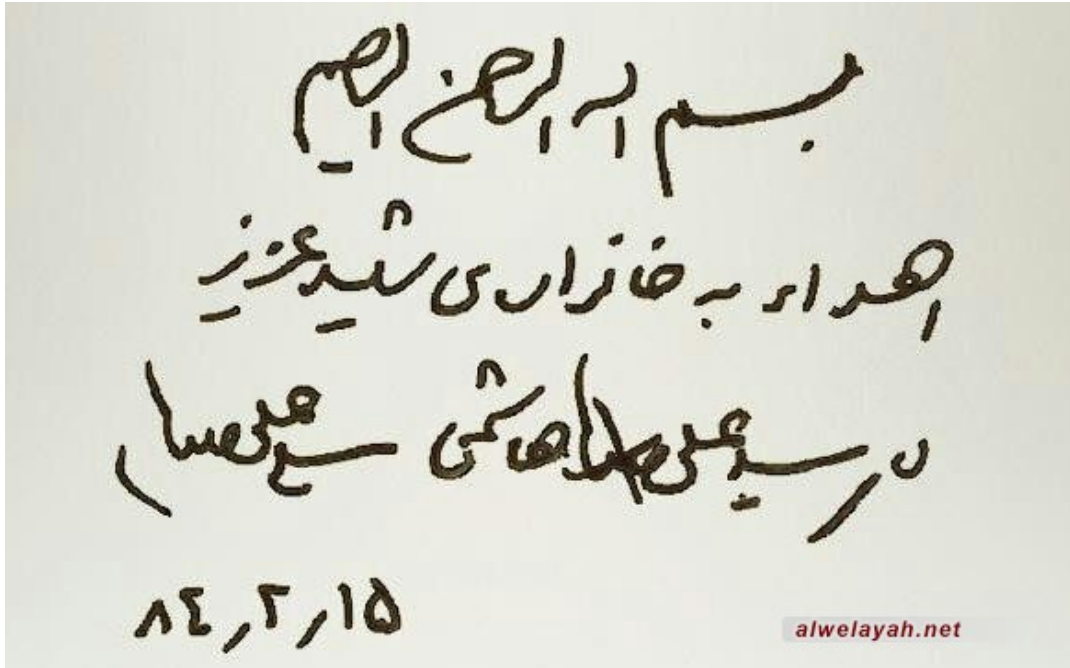 بسم الله الرحمن الرحیم
اهداء به خانواده‌ی شهید عزیز
سید علی هاشمی سید علی
۸٤٫۲٫۱۵
alwelayah.net